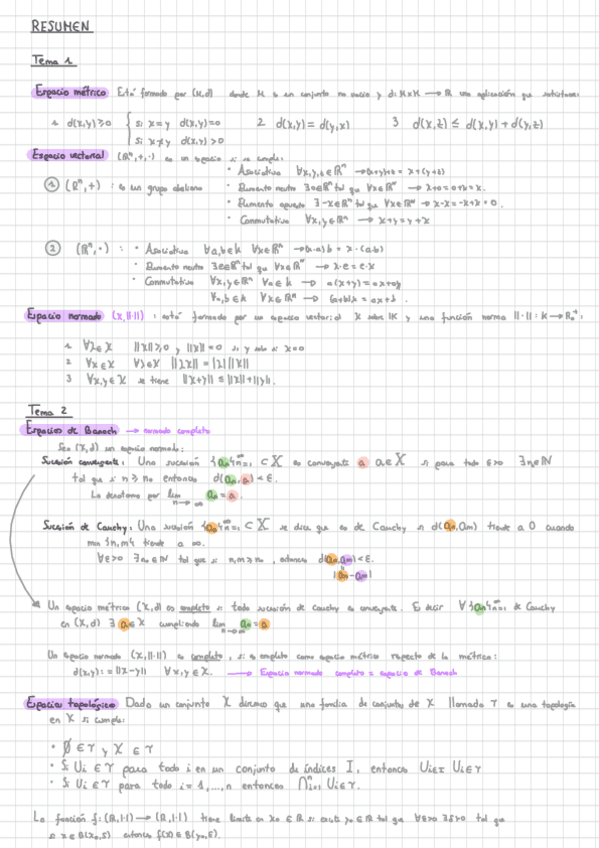 RESUMEN
Tema 1
Espacio métrico Está formado por (M,d) donde M es un conjunto no vacío y d: M×M → ℝ una aplicación que satisface:
1. d(x,y) ≥ 0 { si x=y d(x,y)=0 2 d(x,y) = d(y,x) 3 d(x,z) ≤ d(x,y) + d(y,z)
si x≠y d(x,y) > 0
Espacio vectorial (ℝⁿ,+,·) es un espacio si se cumple:
① (ℝⁿ,+) : es un grupo abeliano
· Asociativa ∀x,y,z∈ℝⁿ
· Elemento neutro ∃0∈ℝⁿ tal que ∀x∈ℝⁿ → x+0=0+x=x.
· Elemento opuesto ∃-x∈ℝⁿ tal que ∀x∈ℝⁿ → x-x=-x+x=0.
· Conmutativa ∀x,y∈ℝⁿ → x+y=y+x
② (ℝⁿ,·) : · Asociativa ∀a,b∈k ∀x∈ℝⁿ → (x·a)b = x·(a·b)
· Elemento neutro ∃e∈ℝⁿ tal que ∀x∈ℝⁿ → x·e=e·x
· Conmutativa ∀x,y∈ℝⁿ ∀a∈k → a(x+y)=ax+ay
∀a,b∈k ∀x∈ℝⁿ →
Espacio normado (X,||·||) : está formado por un espacio vectorial X sobre K y una función norma ||·||: k→ℝ₀⁺:
1. ||x||≥0 y ||x||=0 si y solo si x=0
2 ∀x∈X ||λx||=|λ| ||x||
3 ∀x,y∈X se tiene ||x+y|| ≤ ||x||+||y||.
Tema 2
Espacios de Banach → normado completo
Sea (X,d) un espacio normado:
Sucesión convergente: Una sucesión {aₙ}ₙ₌₁^∞ ⊂ X es convergente a a∈X si para todo ε>0 ∃n₀∈ℕ
tal que si n≥n₀ entonces d(aₙ,a)<ε.
Lo denotamos por lim n→∞ aₙ=a.
Sucesión de Cauchy: Una sucesión {aₙ}ₙ₌₁^∞ ⊂ X se dice que es de Cauchy si d(aₙ,aₘ) tiende a 0 cuando
min{n,m} tiende a ∞.
∀ε>0 ∃n₀∈ℕ tal que si n,m≥n₀, entonces d(aₙ,aₘ)<ε.
|aₙ-aₘ|
Un espacio métrico (X,d) es completo si toda sucesión de Cauchy es convergente. Es decir ∀{aₙ}ₙ₌₁^∞ de Cauchy
en (X,d) ∃a∈X cumpliendo lim n→∞ aₙ=a
Un espacio normado (X,||·||) es completo, si es completo como espacio métrico respecto de la métrica:
d(x,y):=||x-y|| ∀x,y∈X. → Espacio normado completo = espacio de Banach
Espacios topológico Dado un conjunto X diremos que una familia de conjuntos de X llamada τ es una topología
en X si cumple:
· ∅∈τ y X∈τ
· Si Uᵢ∈τ para todo i en un conjunto de índices I, entonces ∪ᵢ∈I Uᵢ∈τ
· Si Uᵢ∈τ para todo i=1,...,n entonces ⋂ᵢ₌₁ⁿ Uᵢ∈τ.
La función f:(ℝ,|·|)→(ℝ,|·|) tiene límite en x₀∈ℝ si existe y₀∈ℝ tal que ∀ε>0 ∃δ>0 tal que
si x∈B(x₀,δ) entonces f(x)∈B(y₀,ε).